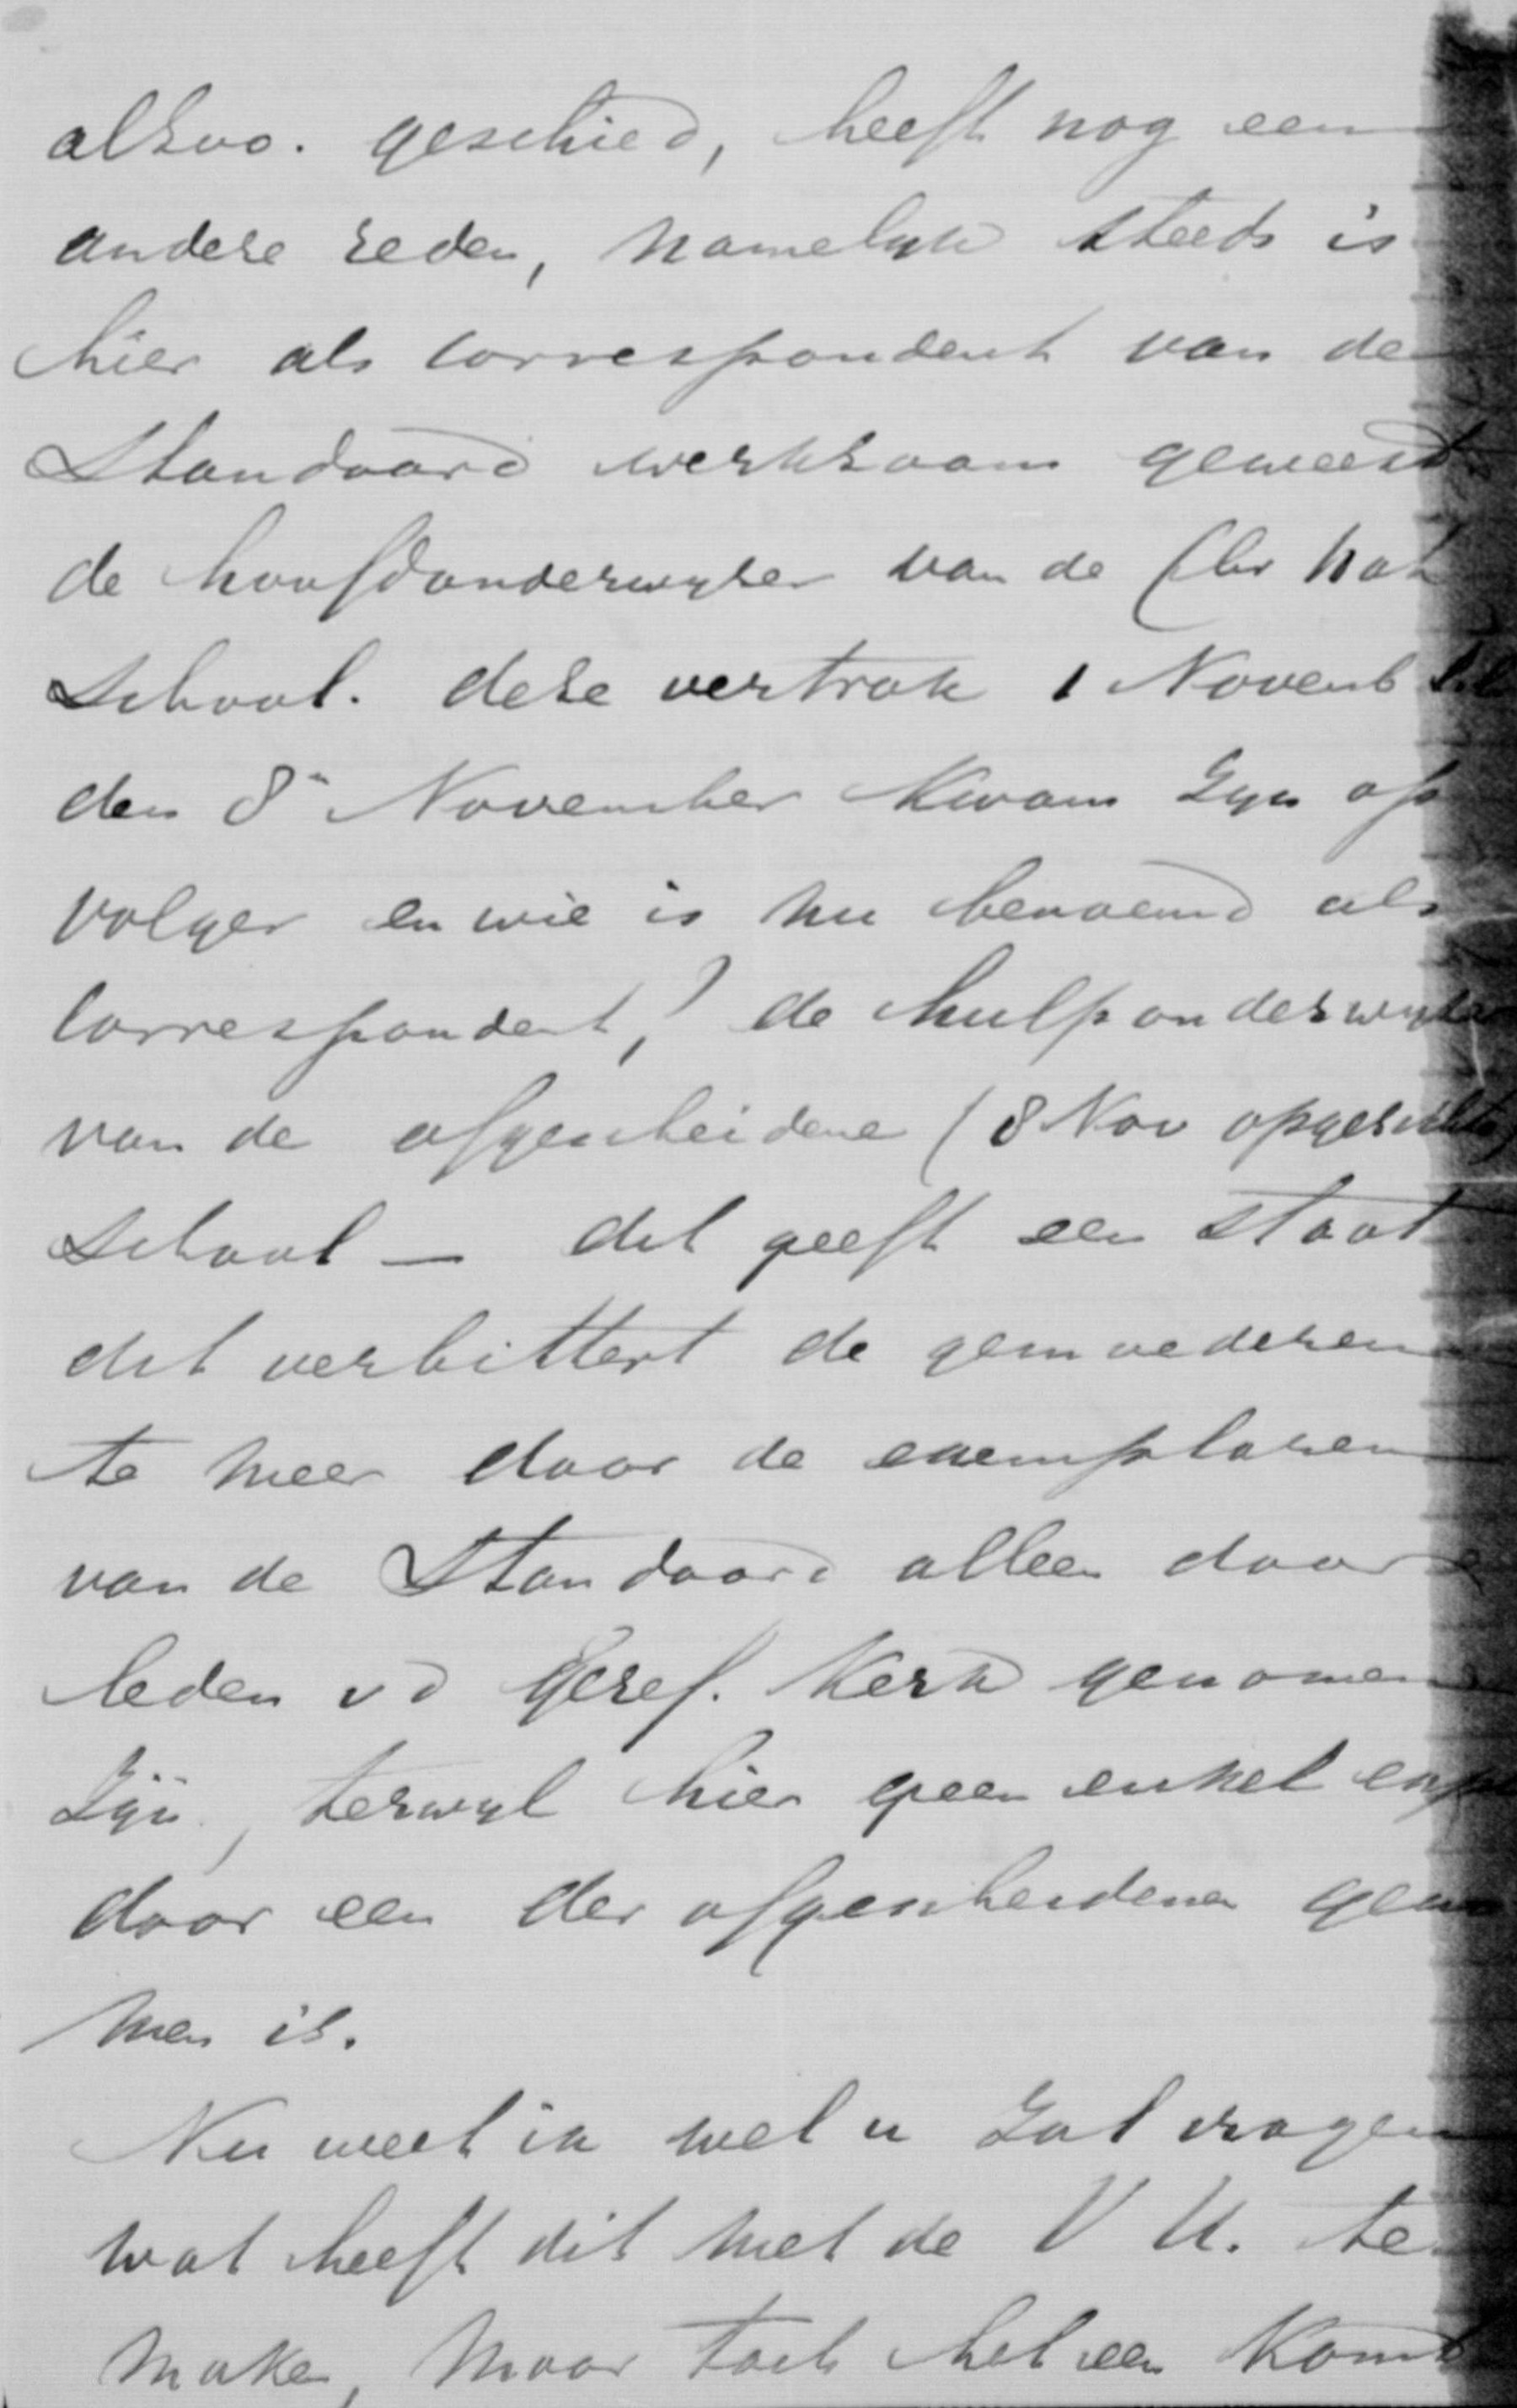 alzoo. geschied, heeft nog een
andere reden, namelyk steeds is
hier als correspondent van de
Standaard werkzaam geweest
de hoofdonderwyzer van de Chr Nat
School. deze vertrok 1 Novemb
den 8n November kwam zyn op
volger en wie is nu benoemd als
correspondent,? de hulponderwyzer
van de afgescheidene (8 Nov opgerichte)
School — dit geeft een staat
dit verbittert de gemoederen
te meer daar de exemplaren
van de Standaard alleen door
leden v d Geref. Kerk genomen
Zijn, terwyl hier geen enkel exp
door een der afgescheidenen geno
men is.
Nu weet ik wel u zal vragen
wat heeft dit met de V U. te
maken, maar toch het een komt